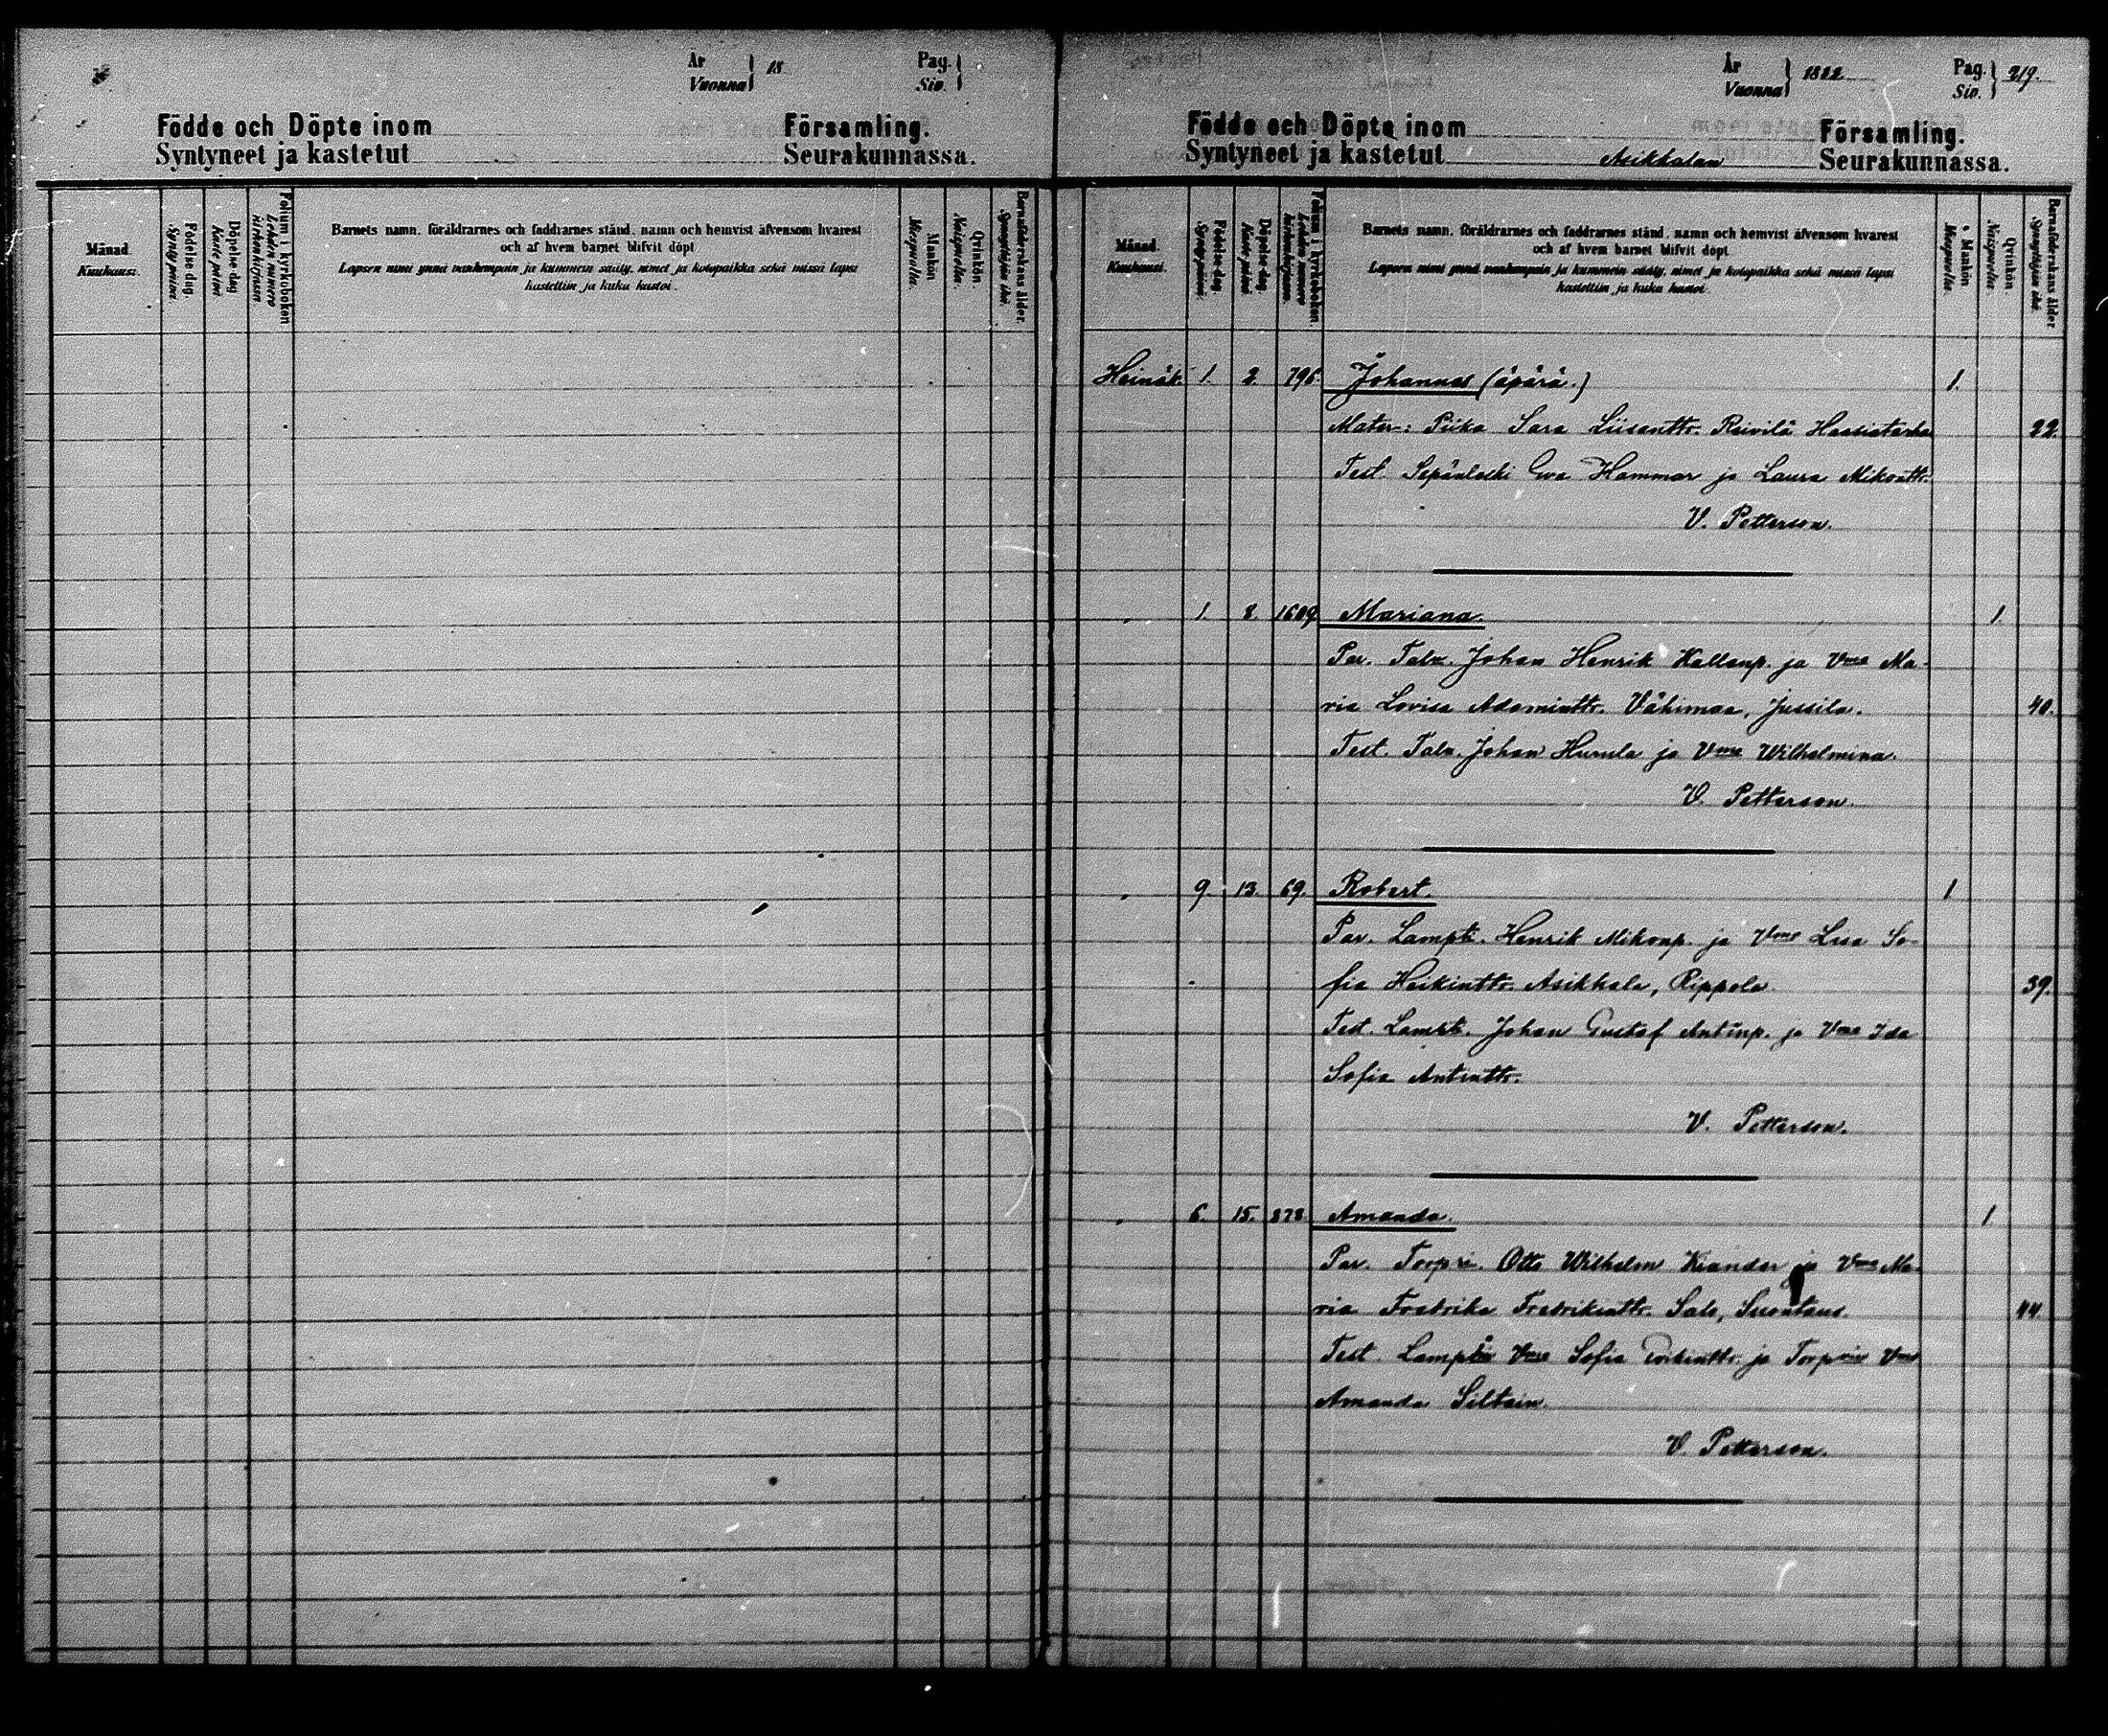 År Vuonna } 18
Pag. Siv. }
Födde och Döpte inom Församling.
Syntyneet ja kastetut Seurakunnassa.
Månad. Kuukausi.
Födelse-dag. Synty-päivä.
Döpelse-dag Kaste-päivä
Folium i kyrkoboken Lehden numero kirkonkirjassa
Barnets namn, föräldrarnes och faddrarnes stånd, namn och hemvist äfvensom hvarest
och af hvem barnet blifvit döpt
Lapsen nimi ynnä vanhempain ja kummein sääty, nimet ja kotopaikka sekä missä lapsi
kastettiin ja kuka kastoi.
Mankön Miespuolia.
Qvinkön. Naispuolia.
Barnaföderskans ålder. Synnyttäjän ikä.
År Vuonna } 1882
Pag. Siv. } 219.
Födde och Döpte inom Församling.
Syntyneet ja kastetut Asikkalan Seurakunnassa.
Månad. Kuukausi.
Födelse-dag. Synty-päivä.
Döpelse-dag. Kaste-päivä
Folium i kyrkoboken. Lehden numero kirkonkirjassa.
Barnets namn, föräldrarnes och faddrarnes stånd, namn och hemvist äfvensom hvarest
och af hvem barnet blifvit döpt
Lapsen nimi ynnä vanhempain ja kummein sääty, nimet ja kotopaikka sekä missä lapsi
kastettiin ja kuka kastoi
Mankön Miespuolia.
Qvinkön. Naispuolia.
Barnaföderskans ålder Synnyttäjän ikä.
Heinäk. 1. 2. 795. Johannes (äpärä.) 1.
Mater: Piika Sara Liisantr. Reivilä 22.
Test. Sepänleski Eva Hammar ja Laura Mikontr.
V. Petterson.
" 1. 8. 1609 Mariana. 1
Par. Talz. Johan Henrik Kallenp. ja Vmo Ma-
ria Lovisa Adamintr. Vähimaa, Jussila. 40.
Test. Talz. Johan Humla ja Vmo Wilhelmina.
V. Petterson.
" 9. 13. 69. Robert. 1
Par. Lampt. Henrik Mikonp. ja Vmo Lisa So-
fia Heikintr. Asikkala, Rippola 39.
Test. Lampt. Johan Gustaf Antinp. ja Vmo Ida
Sofia Antintr.
V. Petterson.
" 6. 15. 878 Amanda. 1
Par. Torpr. Otto Wilhelm Kiander ja Vmo Ma-
ria Fredrika Fredrikintr. Salo, 44.
Test. Vmo Sofia ja Vmo
Amanda Siltain.
V. Petterson.